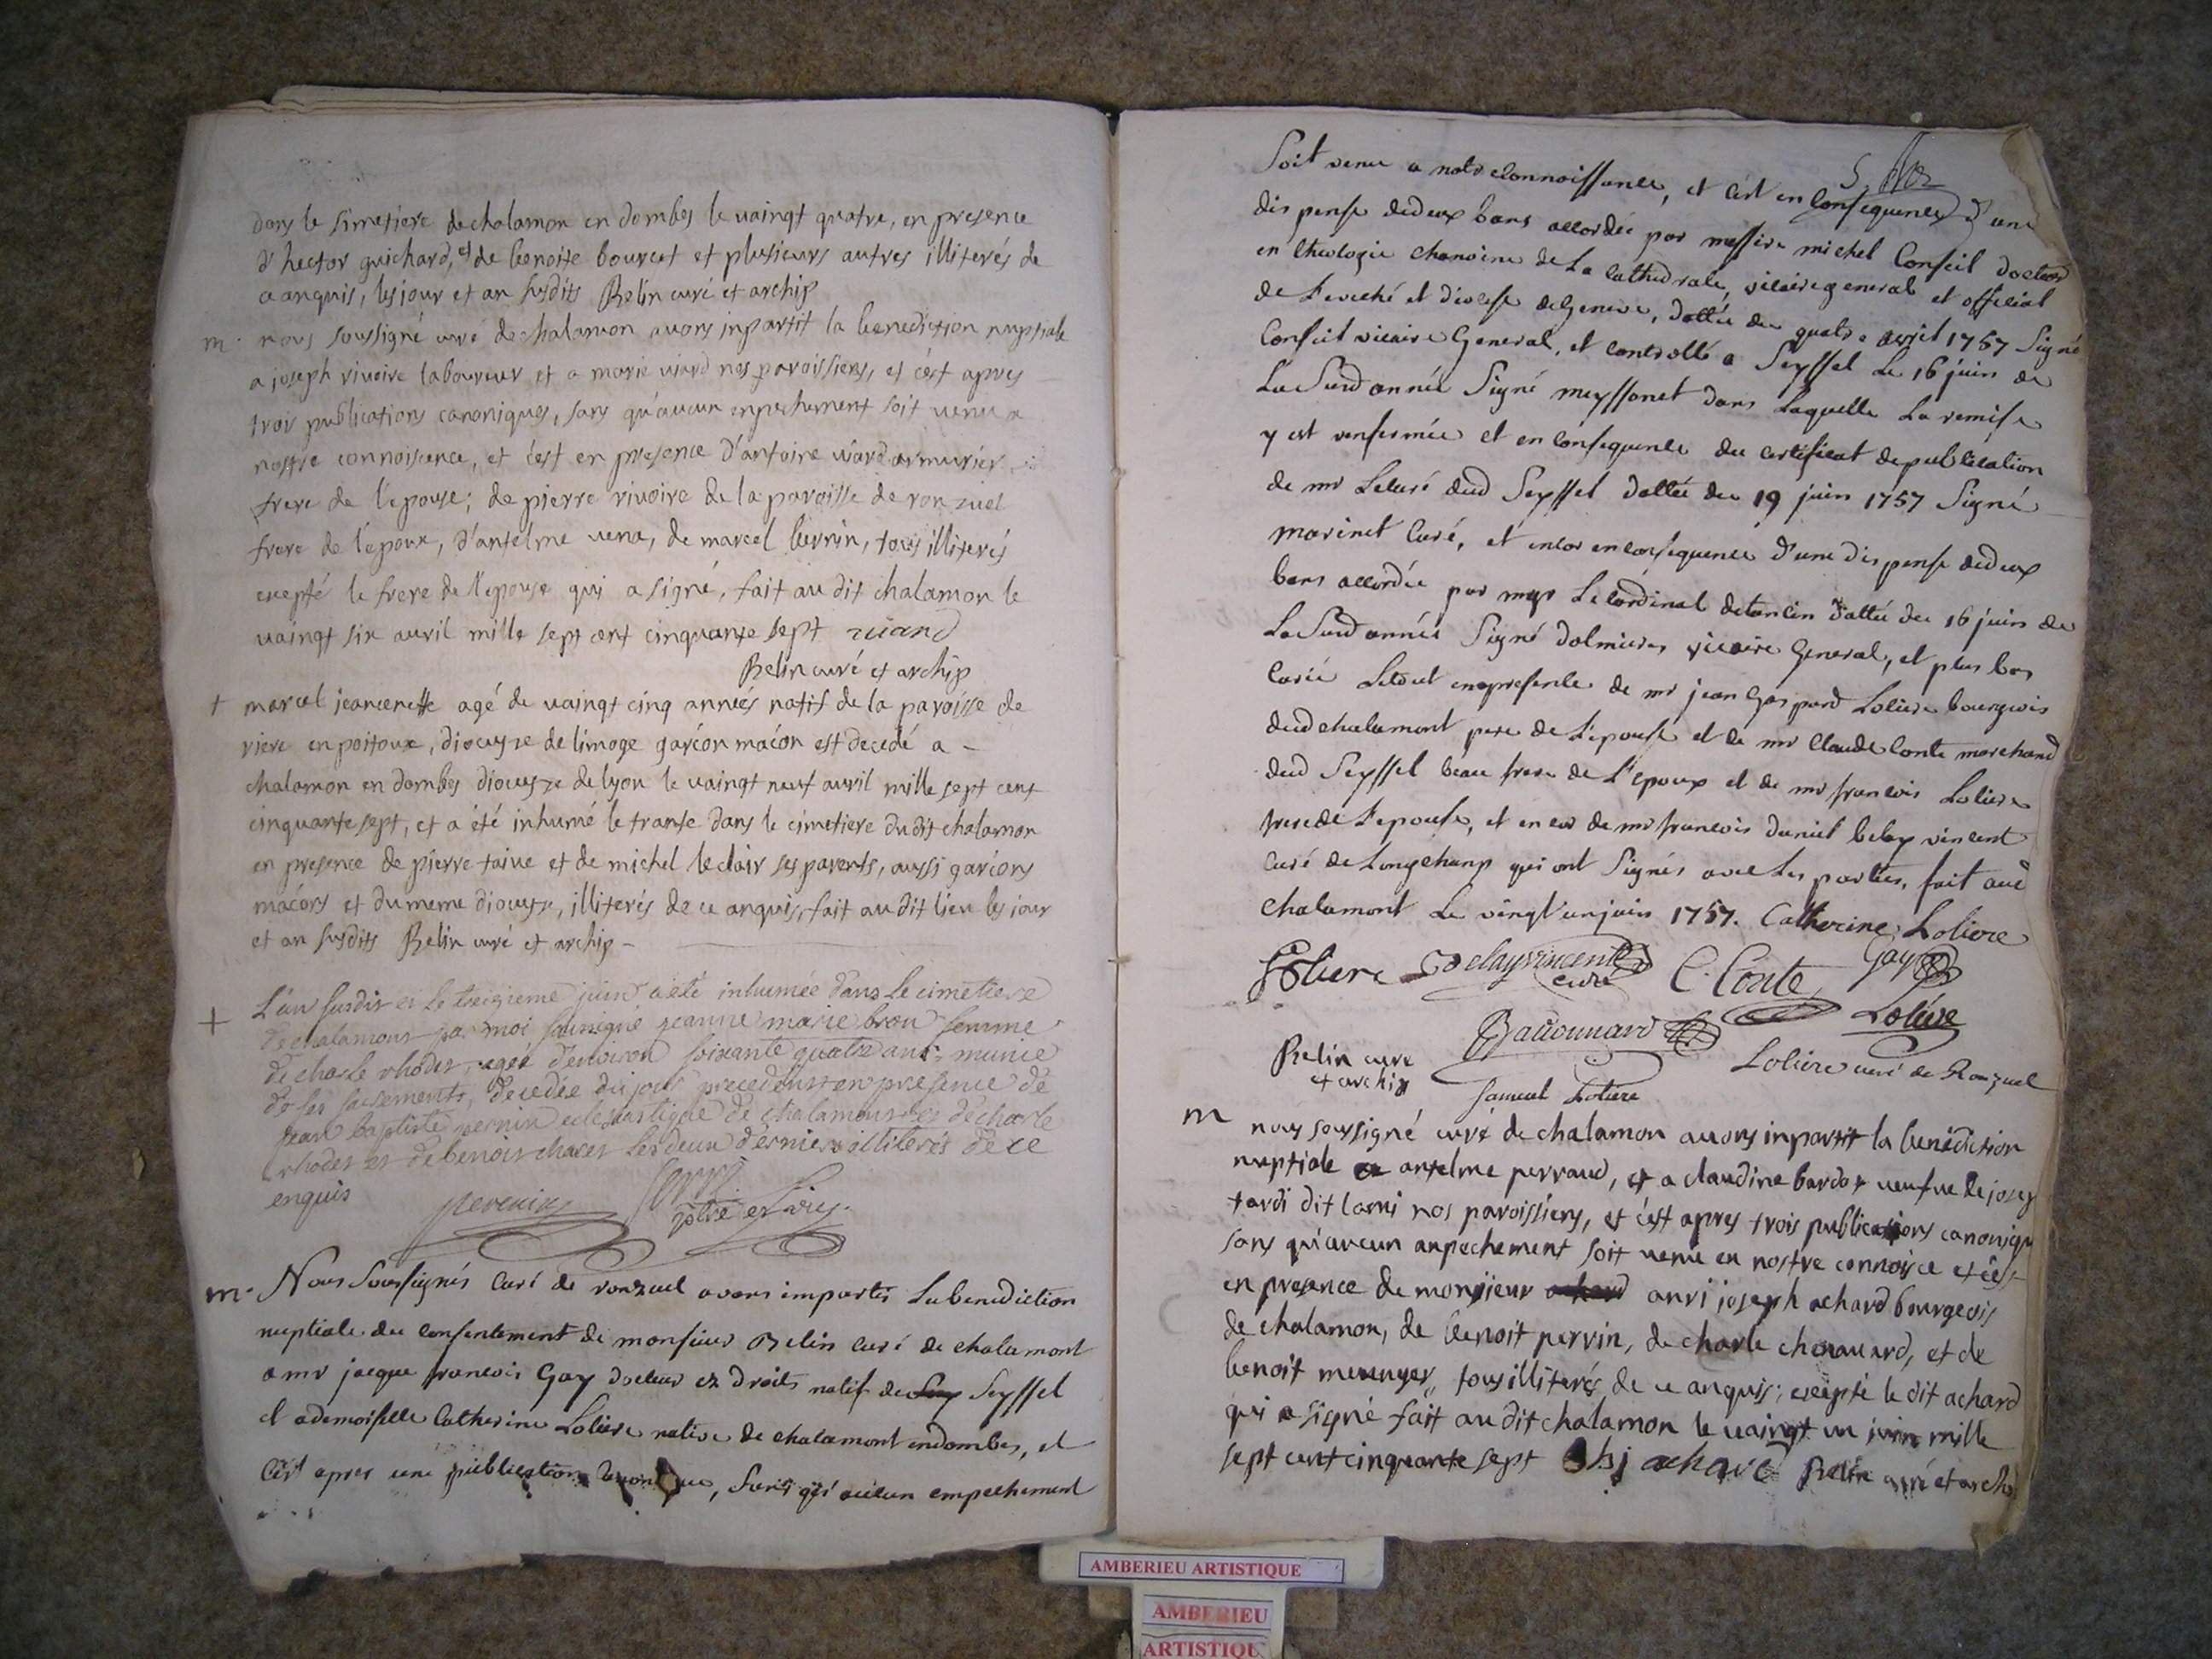 dans le simetiere de chalamon en dombes le vaingt quatre, en presence
d'hector guichard, et de benoite bourcet et plusieurs autres illiterés de
ce anquis, les jour et an susdits Belin curé et archip
m. nous soussigné curé de chalamon avons inpartit la benediction nuptiale
a joseph rivoire laboureur et a marie viard nos paroissiens, et c'est apres
trois publications canoniques, sans qu'aucun enpechement soit venu a
nostre connoiscence, et c'est en presence d'antoine viard armurier
frere de l'epouse; de pierre rivoire de la paroisse de ronzuel
frere de l'epoux, d'antelme vena, de marcel perrin, tous illiterés
excepté le frere de l'epouse qui a signé, fait au dit chalamon le
vaingt six avril mille sept cent cinquante sept viand
Belin curé et archip
+ marcel jeancenette agé de vaingt cinq années natif de la paroisse de
riere en poitoux, diocuyze de limoge garcon macon est decedé a -
chalamon en dombes diocuyze de lyon le vaingt neuf avril mille sept cent
cinquante sept, et a été inhumé le trante dans le cimetiere du dit chalamon
en presence de pierre taive et de michel leclair ses parents, aussi garcons
macons et du meme diocuyze, illiterés de ce anquis, fait au dit lieu les jour
et an susdits Belin curé et archip -
+ L'an susdit et le treizieme juin a été inhumée dans le cimetiere
de chalamont par moi soussigné jeanne marie bron femme
de charle rhodet, agée d'environ soixante quatre ans, munie
de ses sacrements, decedée du jour precedent en presence de
jean baptiste pernin eclesiastique de chalamont et de charle
rhodet et de benoit chanet les deux derniers illiterés de ce
enquis
pretre et vic.
m. Nous soussignés curé de ronzuel avons impartis la benediction
nuptiale du consentement de monsieur Belin curé de chalamont
a mr jacque francois Gay docteur ez droits natif de Sey Seyssel
et a demoiselle Catherine Loliere native de chalamont en dombes, et
c'est apres une publication canonique, sans qu'aucun empechement
soit venu a notre connoissance, et c'est en consequence d'une
dispense de deux bans accordée par messire michel Conseil docteur
en theologie chanoine de La Cathedrale, vicaire general et official
de L'eveché et diocese de Geneve, dattée du quatre avril 1757 Signé
Conseil vicaire General, et controllé a Seyssel le 16 juin de
La Susd année Signé meyssonet dans Laquelle La remise
y est renfermée et en consequence du certificat de publication
de mr Le curé dud Seyssel dattée du 19 juin 1757 Signé
marinet Curé, et encor en consequence d'une dispense de deux
bans accordée par mgr Le Cardinal de tencin dattée du 16 juin de
La Susd année Signé dolmieres vicaire General, et plus bas
Letout en presence de mr jean Gaspard Loliere bourgeois
dud chalamont pere de L'epouse et de mr Claude Conte marchand
dud Seyssel beau frere de L'epoux et de mr francois Loliere
frere de L'epouse, et encor de mr francois daniel belay vincent
Curé de Longchamp qui ont Signés avec les parties, fait aud
Chalamont Le vingt un juin 1757. Catherine Loliere
Loliere Belay vincent curé C. Conte Gay
Loliere
Belin cure
et archip
Loliere curé de Ronzuel
Samuel Loliere
m nous soussigné curé de chalamon avons inpartit la benediction
nuptiale a antelme perraud, et a claudine bardet veufve de josep
tardi dit lami nos paroissiens, et c'est apres trois publications canoniqu
sans qu'aucun anpechement soit venu en nostre connoisce et c'est
en presence de monsieur achard anri joseph achard bourgeois
de chalamon, de benoit perrin, de charle chenavard, et de
benoit meunyer, tous illiterés de ce anquis; excepté le dit achard
qui a signé fait au dit chalamon le vaingt un juin mille
sept cent cinquante sept achard Belin curé et archi
AMBERIEU ARTISTIQUE
AMBERIEU
ARTISTIQU